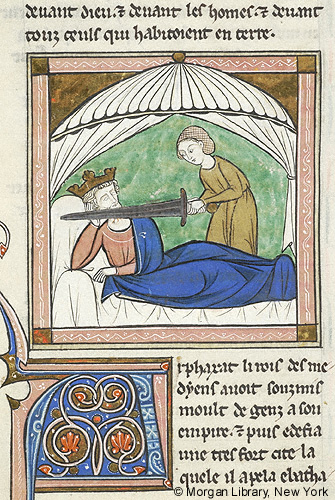 deuant dieu. ⁊ deuant les homes. ⁊ deuant
touz ceuls qui habitoient en terre.
rpharat li rois des me
dyens auoit souzmis
moult de genz a son
empire. ⁊ puis edefia
une tres fort cite la
quele il apela
© Morgan Library, New York